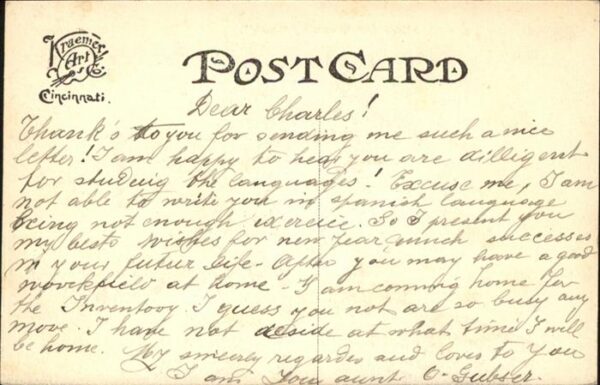 Kraemer
Art
Co.
Cincinnati.
POST CARD
Dear Charles!
Thank's to you for sending me such a nice
letter! I am happy to hear you are dilligent
for studuig the languages! Excuse me, I am
not able to write you in spanish language
being not enough exercice. So I present you
my bests wishes for new year much successes
in your futur life - After you may have a good
workfield at home - I am comming home for
the Inventory I guess you not are so busy any
move. I have not deside at what time I will
be home. My sincerly regardes and loves to You
I am You aunt O. Gubser.